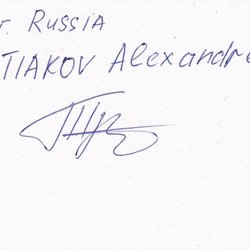 r. Russia
TIAKOV Alexandre